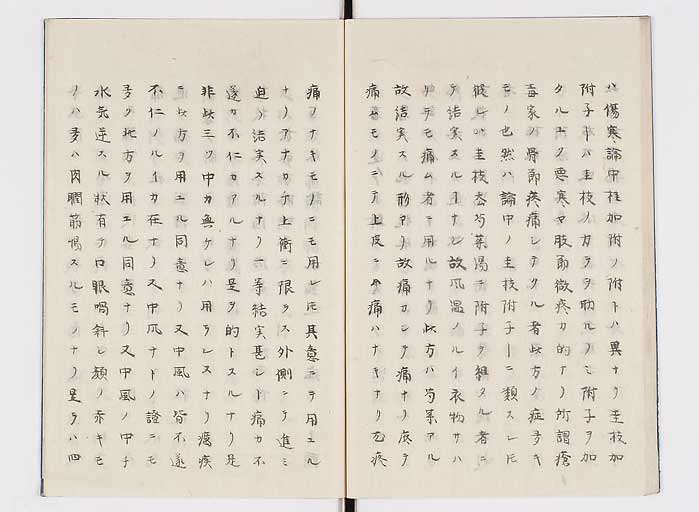 ハ傷寒論中桂加附ノ附トハ異ナリ圭枝加
附子ーハ圭枝ノカラヲ助ルノミ附子ヲ加
タルユヘ悪寒ヤ肢節微疼カ的ナリ所謂瘡
毒家ノ骨節疼痛シテクル者此方ノ症多キ
モノ也然ハ論中ノ圭枝附子ーニ類スレ𪜈
圭枝芍薬湯ニ附子ヲ組タル者ニ
テ結実スルーナシ故風湿ノルイ衣物サハ
リテモ痛ム者ニ用ルナリ此方ハ芍薬アル
故結実スル形アリ故痛カシテ痛ナリ底ヲ
痛セモノニテ上皮ニハ痛ハナキナリ尤疼
痛ノナキモノニモ用レ𪜈其意ニテ用ユル
ナリアナカチ上衝ニ限ラス外側ニテ進ミ
迫リ結実スルナリ一等結実甚シト痛カ不
遂カ不仁カアルナリ是ヲ的トスルナリ是
非此三ツ中カ無ケレハ用ラレヌナリ癘疾
ニ此方ヲ用ユル同意ナリ又中風ハ皆不遂
不仁ノルイカ在ナリ又中風ナトノ證ニモ
多ク此方ヲ用ユル同意ナリ又中風ノ中チ
水気逆スル状有テ口眼喎斜シ頬ノ赤キモ
ノハ多ハ肉瞤筋惕スルモノナリ是ラハ四